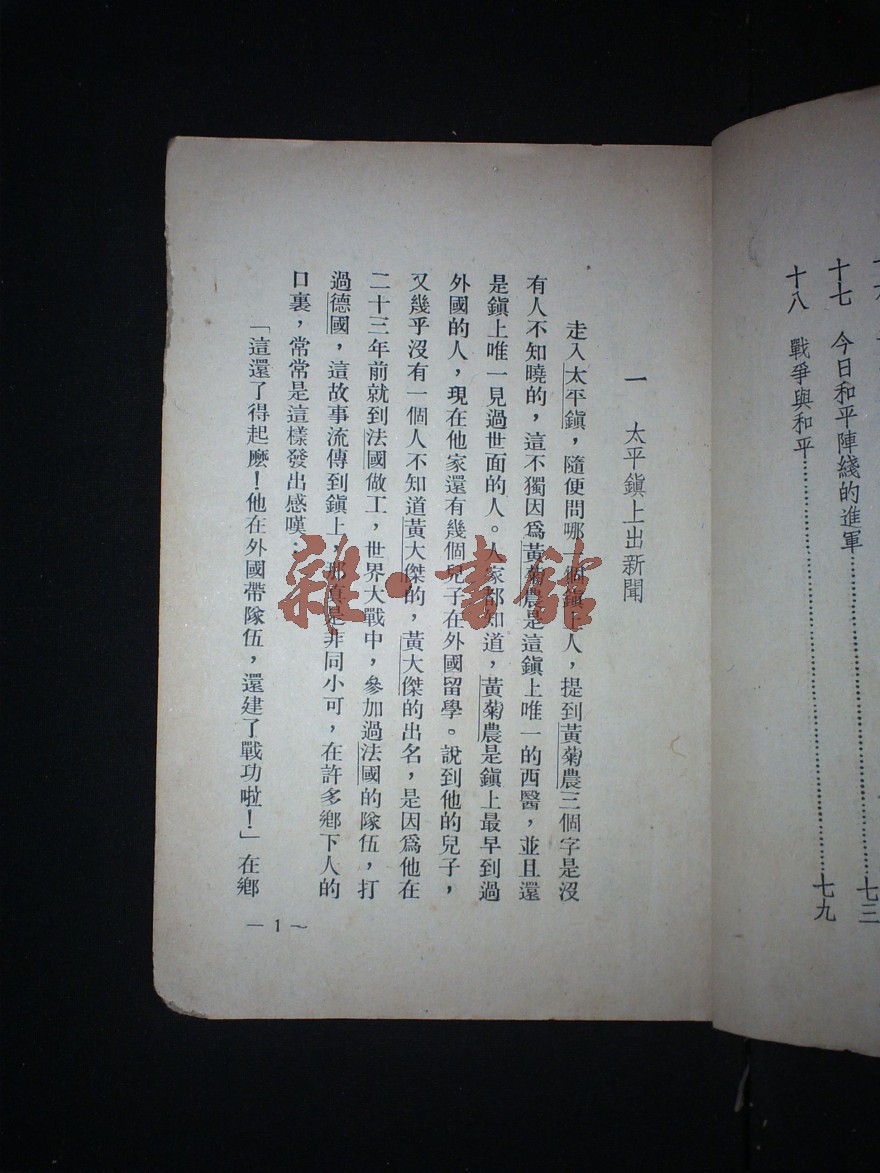 十七　今日和平陣綫的進軍……………………七三
十八　戰爭與和平……………………七九
一　太平鎭上出新聞
走入太平鎭，隨便問哪一個鎭上人，提到黃菊農三個字是沒
有人不知曉的，這不獨因爲黃菊農是這鎭上唯一的西醫，並且還
是鎭上唯一見過世面的人。人家都知道，黃菊農是鎭上最早到過
外國的人，現在他家還有幾個兒子在外國留學。說到他的兒子，
又幾乎沒有一個人不知道黃大傑的，黃大傑的出名，是因爲他在
二十三年前就到法國做工，世界大戰中，參加過法國的隊伍，打
過德國，這故事流傳到鎭上，那眞是非同小可，在許多鄕下人的
口裏，常常是這樣發出感嘆：
「這還了得起麽！他在外國帶隊伍，還建了戰功啦！」在鄕
— 1 —
雜·書館